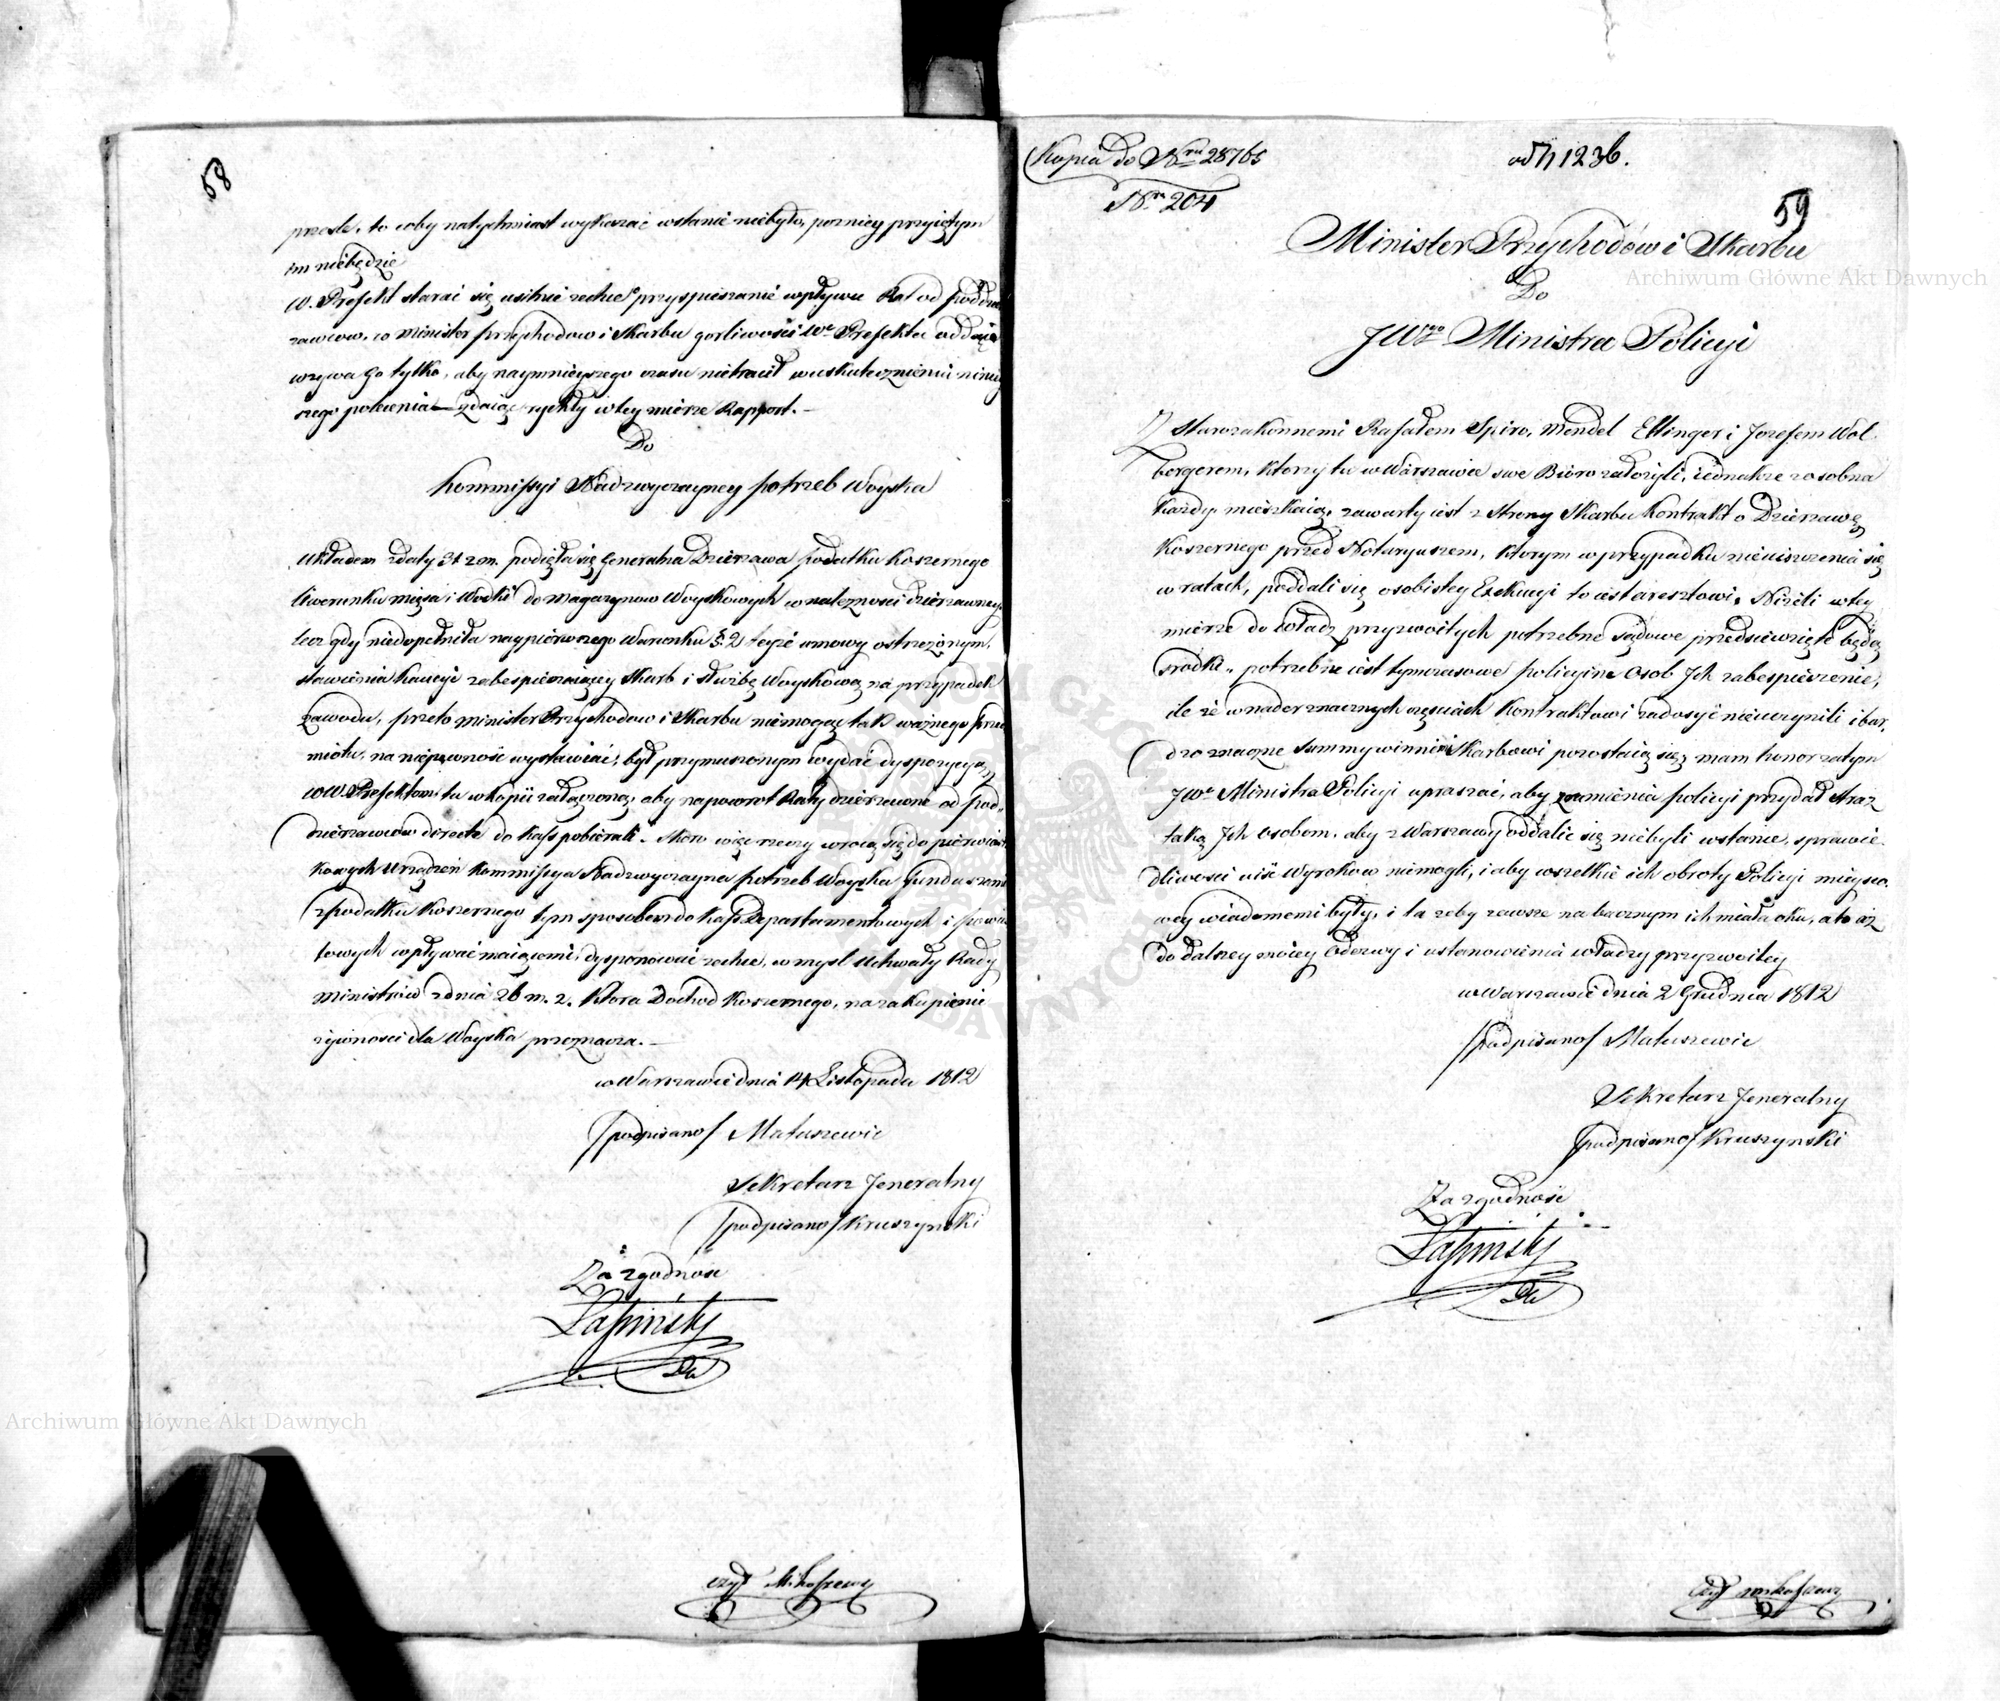 58
przesle, to coby natychmiast wykazać wstanie niebyło, pozniey przyiętym
im niebędzie
W. Prefekt starać się usilnie zechce przyspieszanie wpływu Rat od poddzier
zawcow, co Minister Przychodow i Skarbu gorliwości We Prefekta oddaiąc
wzywa go tylko, aby naymnieyszego czasu nietracił wuskutecznieniu ninieÿ
szego polecenia zdaiąc rychły wtey mierze Rapport. —
Do
Kommissyi Nadzwyczayney potrzeb Woyska
Układem zdaty 31 z. m. podięła się Generalna Dzierzawa podatku Koszernego
liwerunku mięsa i Wodki do Magazynow Woyskowych w należności dzierzawney
lecz gdy niedopełniła naypierwszego Warunku §. 2 teyże umowy ostrzeżonym,
stawienia Kaucyi zabespieczaiącey Skarb i służbę Woyskową na przypadek
zawodu, przeto Minister Przychodow i Skarbu niemogąc tak ważnego przed
miotu, na niepewność wystawiać, był przymuszonym wydać dyspozycyą
WW. Prefektom tu w kopii załączoną, aby napowrot Raty dzierzawne od pod„
dzierzawcow directe do Kass pobierali. Skoro więc rzeczy wrocą się do pierwiast
kowych Urządzeń Kommissya Nadzwyczayna potrzeb Woyska Funduszami
z podatku Koszernego tym sposobem do Kass Departamentowych i Powia
towych wpływać maiącemi, dysponować zechce, w mysl Uchwały Rady
Ministrów zdnia 26 m. z. Ktora Dochod Koszernego, na zakupienie
żywnosci dla Woyska przeznacza. —
w Warszawie dnia 14 Listopada 1812
/podpisano/ Matuszewic
Sekretarz Jeneralny
/podpisano/ Kruszynski
Za zgodność
Łapiński
czyt Mikoszewy
Kopia do Nru 28765
Nro 204
od N 1236.
59
Minister Przychodów i Skarbu
Do
JWgo Ministra Policyi
Z Starozakonnemi Rafałem Spiro, Mendel Ettinger i Jozefem Wol„
bergerem, ktorzy tu w Warszawie swe Bióro założyli, iednakze zosobna
każdy mieszkaią, zawarty iest z strony Skarbu Kontrakt o Dzierzawę
Koszernego przed Notaryuszem, ktorym w przypadku nieuiszczenia się
w ratach, poddali się osobistey Exekucyi to iest aresztowi. Niżeli wtey
mierze do Władz przyzwoitych potrzebne sądowe przedsiewzięte będą
srodki„ potrzebne iest tymczasowe policyine Osob Ich zabespieczenie,
ile że w nader znacznych częsciach Kontraktowi zadosyć nieuczynili i bar„
dzo znaczne summy winnimi Skarbowi pozostaią się, mam honor zatym
JWo Ministra Policyi upraszać, aby zramienia policyi przydał Straz
taką Ich Osobom, aby z Warszawy oddalić się niebyli wstanie, sprawie„
dliwości uiść Wyrokow niemogli, i aby wszelkie ich obroty Policyi mieysco„
wey wiadomemi były, i ta zeby zawsze na bacznym ich miała oku, a to aż
do dalszey moiey Odezwy i ustanowienia władzy przyzwoitey
w Warszawie dnia 2 Grudnia 1812
/podpisano/ Matuszewic
Sekretarz Jeneralny
/podpisano/ Kruszynski
Za zgodność
Łapiński
Czyt Mikoszewy
Archiwum Główne Akt Dawnych
Archiwum Główne Akt Dawnych